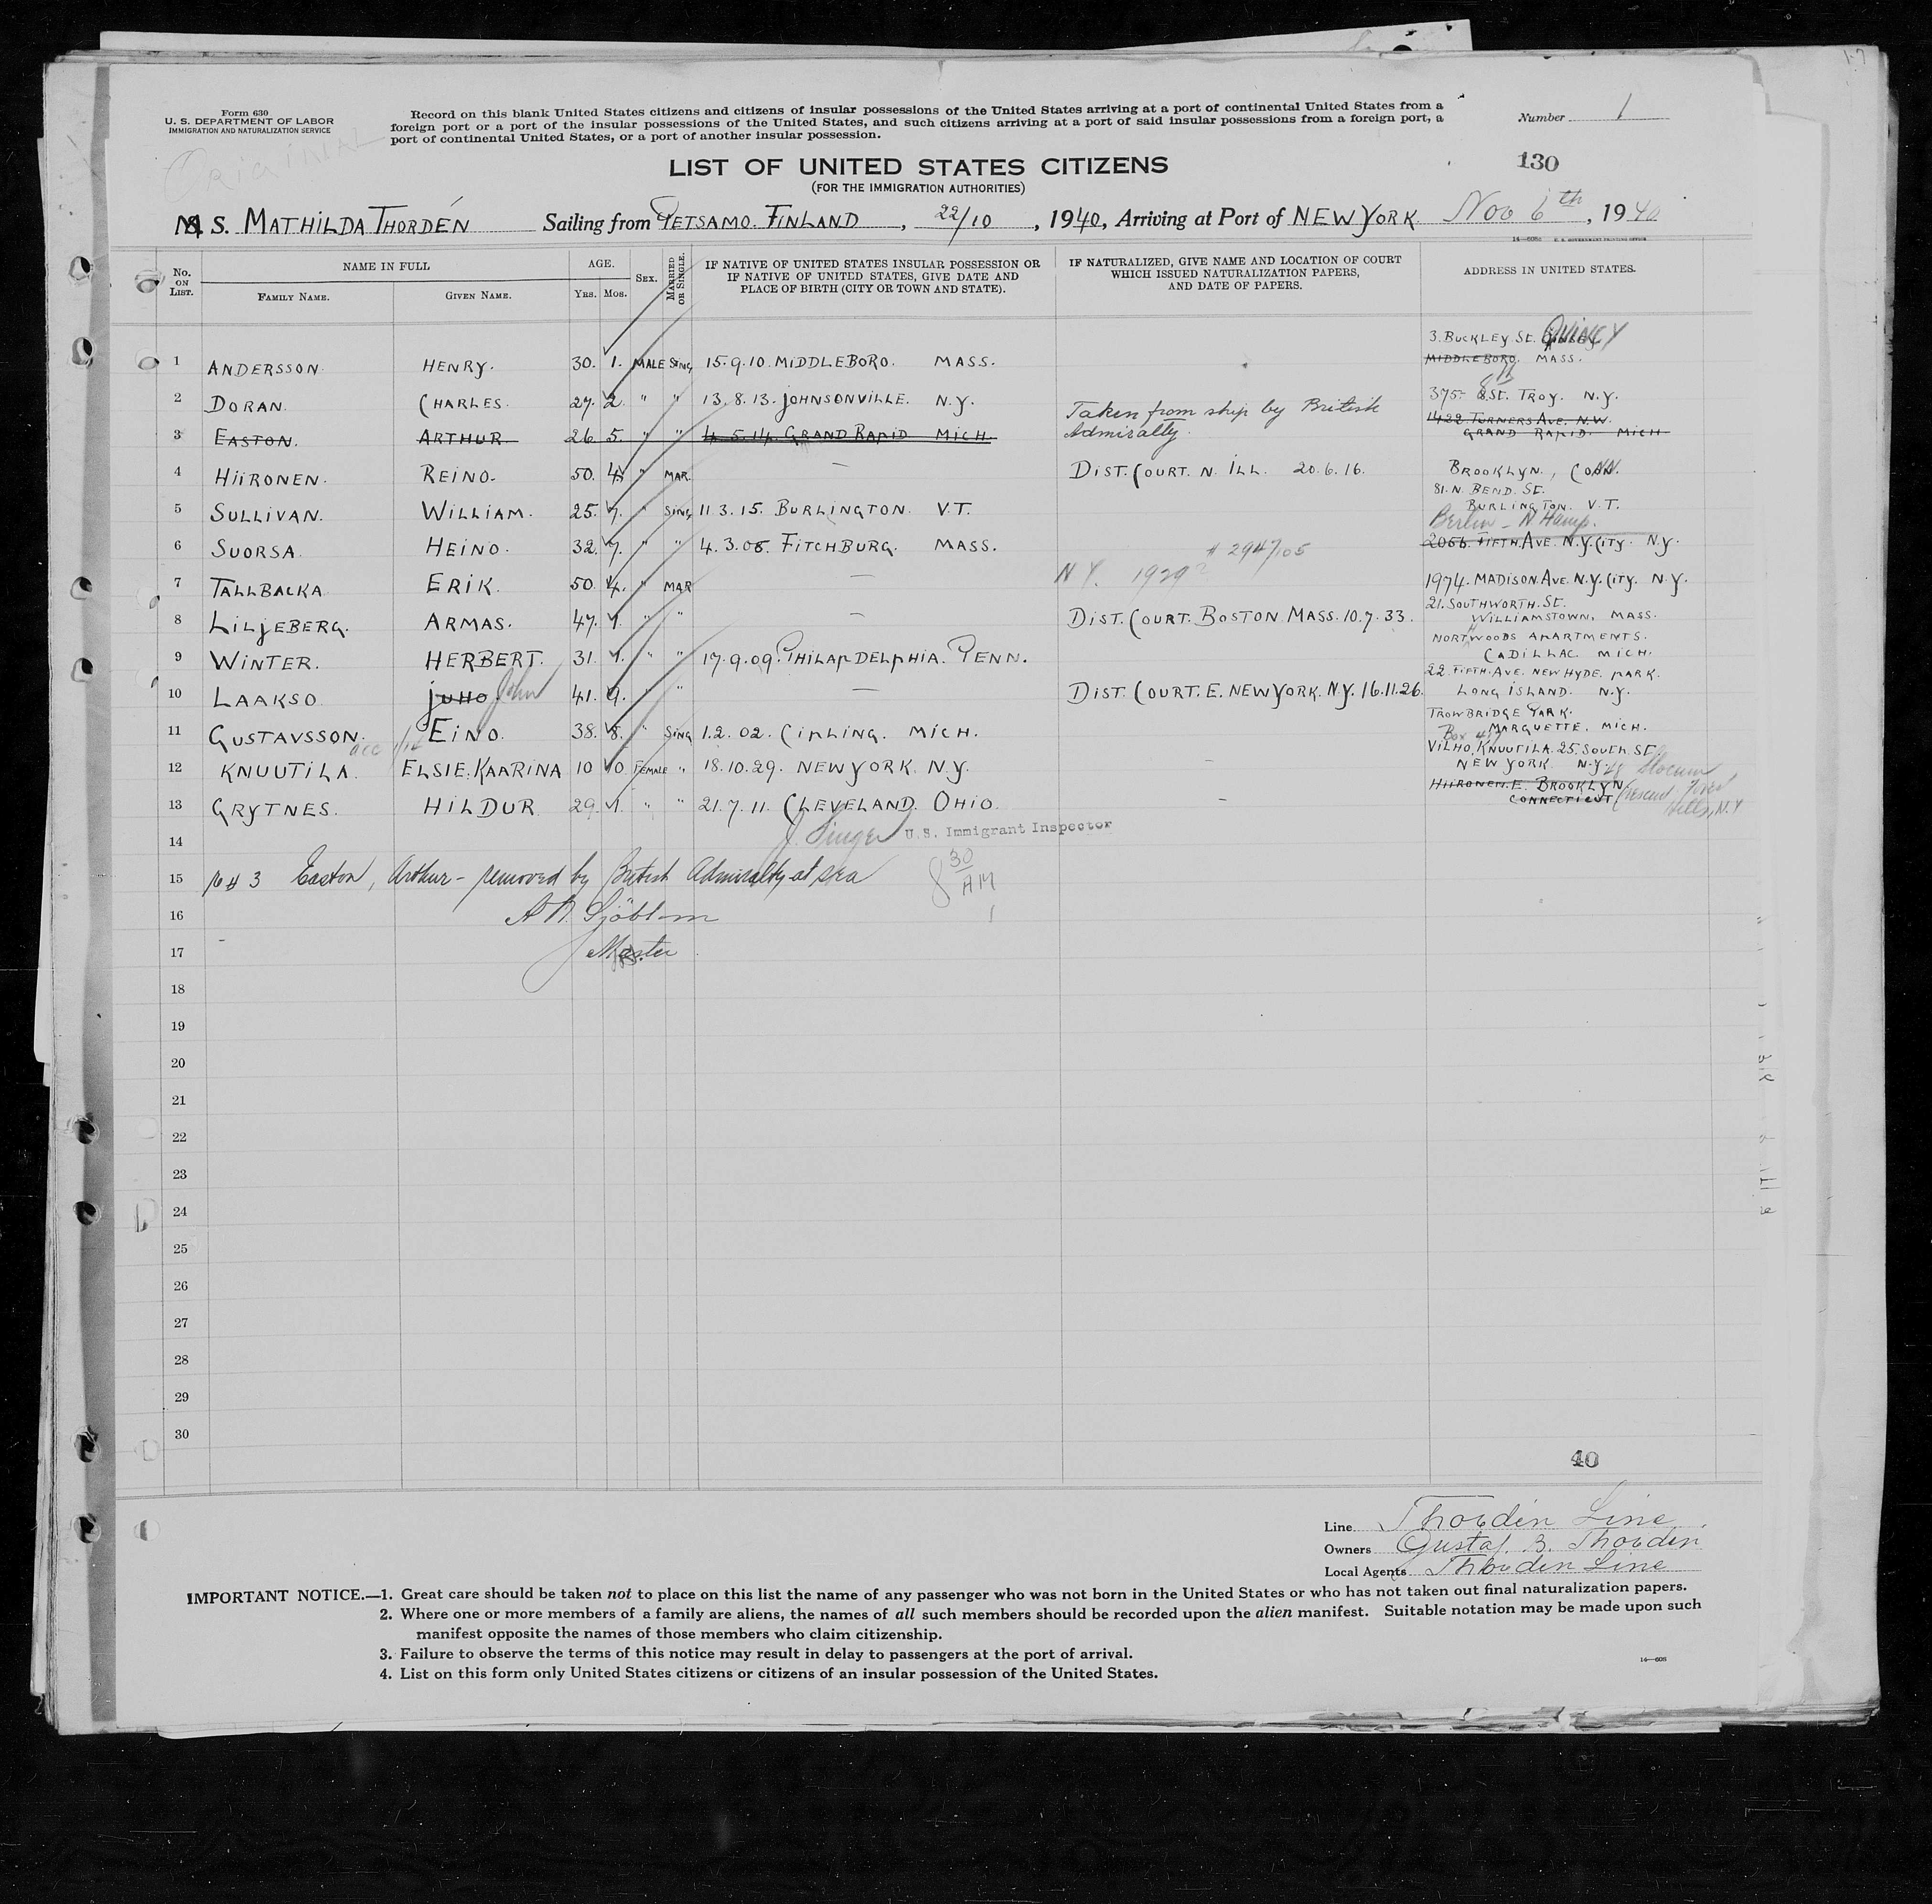 Form 630
U. S. DEPARTMENT OF LABOR
IMMIGRATION AND NATURALIZATION SERVICE
ORIGINAL
Record on this blank United States citizens and citizens of insular possessions of the United States arriving at a port of continental United States from a
foreign port or a port of the insular possessions of the United States, and such citizens arriving at a port of said insular possessions from a foreign port, a
port of continental United States, or a port of another insular possession.
Number 1
130
LIST OF UNITED STATES CITIZENS
(FOR THE IMMIGRATION AUTHORITIES)
M S. MATHILDA THORDÉN Sailing from PETSAMO. FINLAND, 22/10, 1940, Arriving at Port of NEW YORK Nov 6th, 1940
14—608c U. S. GOVERNMENT PRINTING OFFICE
No. ON LIST.
NAME IN FULL
FAMILY NAME.
GIVEN NAME.
AGE.
YRS. MOS.
SEX.
MARRIED OR SINGLE.
IF NATIVE OF UNITED STATES INSULAR POSSESSION OR
IF NATIVE OF UNITED STATES, GIVE DATE AND
PLACE OF BIRTH (CITY OR TOWN AND STATE).
IF NATURALIZED, GIVE NAME AND LOCATION OF COURT
WHICH ISSUED NATURALIZATION PAPERS,
AND DATE OF PAPERS.
ADDRESS IN UNITED STATES.
1 ANDERSSON. HENRY. 30. 1. MALE SING 15.9.10 MIDDLEBORO. MASS. 3. BUCKLEY ST. QUINCY
MIDDLEBORO. MASS.
2 DORAN. CHARLES. 27. 2. " " 13.8.13. JOHNSONVILLE. N.Y. 375- 8 ST. TROY. N.Y.
3 EASTON. ARTHUR 26. 5. " " 4.5.14. GRAND RAPID MICH. Taken from ship by British
Admirally. 1422 TURNERS AVE. N.W.
GRAND RAPID. MICH
4 HIIRONEN. REINO. 50. 4. " MAR. — DIST. COURT. N. ILL. 20.6.16. BROOKLYN., CONN.
5 SULLIVAN. WILLIAM. 25. 7. " SING 11 3.15. BURLINGTON. V.T. 81. N. BEND. ST.
BURLINGTON. V.T.
6 SUORSA. HEINO. 32. 7. " " 4.3.08. FITCHBURG. MASS. Berlin - N Hamp.
2056. FIFTH. AVE. N.Y. CITY. N.Y.
# 2947105
7 TALLBACKA ERIK. 50. 4. " MAR — N Y. 1929? 1974. MADISON AVE. N.Y. CITY. N.Y.
8 LILJEBERG. ARMAS. 47. 1. " " — DIST. COURT. BOSTON MASS. 10.7.33. 21. SOUTHWORTH. ST.
WILLIAMSTOWN. MASS.
9 WINTER. HERBERT. 31. 1. " " 17.9.09. PHILAPDELPHIA. PENN. NORTHWOODS APARTMENTS.
CADILLAC MICH.
10 LAAKSO JUHO John 41. 9. " " — DIST. COURT. E. NEW YORK. N.Y. 16.11.26. 22. FIFTH. AVE. NEW HYDE. PARK.
LONG ISLAND. N.Y.
11 GUSTAVSSON. EINO. 38. 8. " SING 1.2.02. CIPLING. MICH. TROWBRIDGE PARK.
MARQUETTE. MICH.
12 KNUUTILA. ELSIE. KAARINA 10 0 FEMALE " 18.10.29. NEW YORK. N.Y. – VILHO. KNUUTILA. 25. SOUTH. ST.
NEW YORK N.Y.
13 GRYTNES. HILDUR 29. 1. " " 21.7.11. CLEVELAND. OHIO. – HIIRONEN. E. BROOKLYN
CONNECTICUT
Slocum
Crescent Forest
Hills, N.Y
J. Singer U.S. Immigrant Inspector
14
15 # 3 Easton, Arthur - removed by British Admiralty at sea
8 30 AM
16 Sjöblom
17 Master
18
19
20
21
22
23
24
25
26
27
28
29
30
40
Line Thordén Line
Owners Gustaf. B. Thordén
Local Agents Thordén Line
IMPORTANT NOTICE.—1. Great care should be taken not to place on this list the name of any passenger who was not born in the United States or who has not taken out final naturalization papers.
2. Where one or more members of a family are aliens, the names of all such members should be recorded upon the alien manifest. Suitable notation may be made upon such
manifest opposite the names of those members who claim citizenship.
3. Failure to observe the terms of this notice may result in delay to passengers at the port of arrival.
4. List on this form only United States citizens or citizens of an insular possession of the United States.
14—608